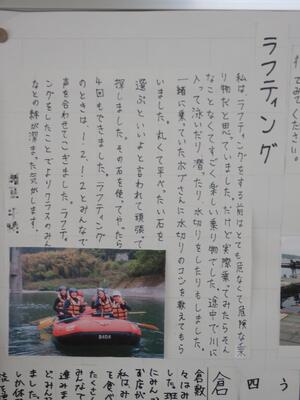 ラフティング
私は、ラフティングをする前はとても危なくて危険な乗
り物だと思っていました。だけど実際乗ってみたらそん
なことなくてすごく楽しい乗り物でした。途中で川に
入って泳いだり潜ったり、水切りをしたりもしました。
一緒に乗っていたボブさんに水切りのコツを教えてもら
いました。丸くて平べったい石を
選ぶといいよと言われて頑張って
探しました。その石を使ってやったら
4回もできました。ラフティング
のときは、1・2、1・2とみんなで
声を合わせてこぎました。ラフティ
ングをしたことでよりクラスのみん
なとの絆が深まった気がします。
B404
四
倉
倉敷